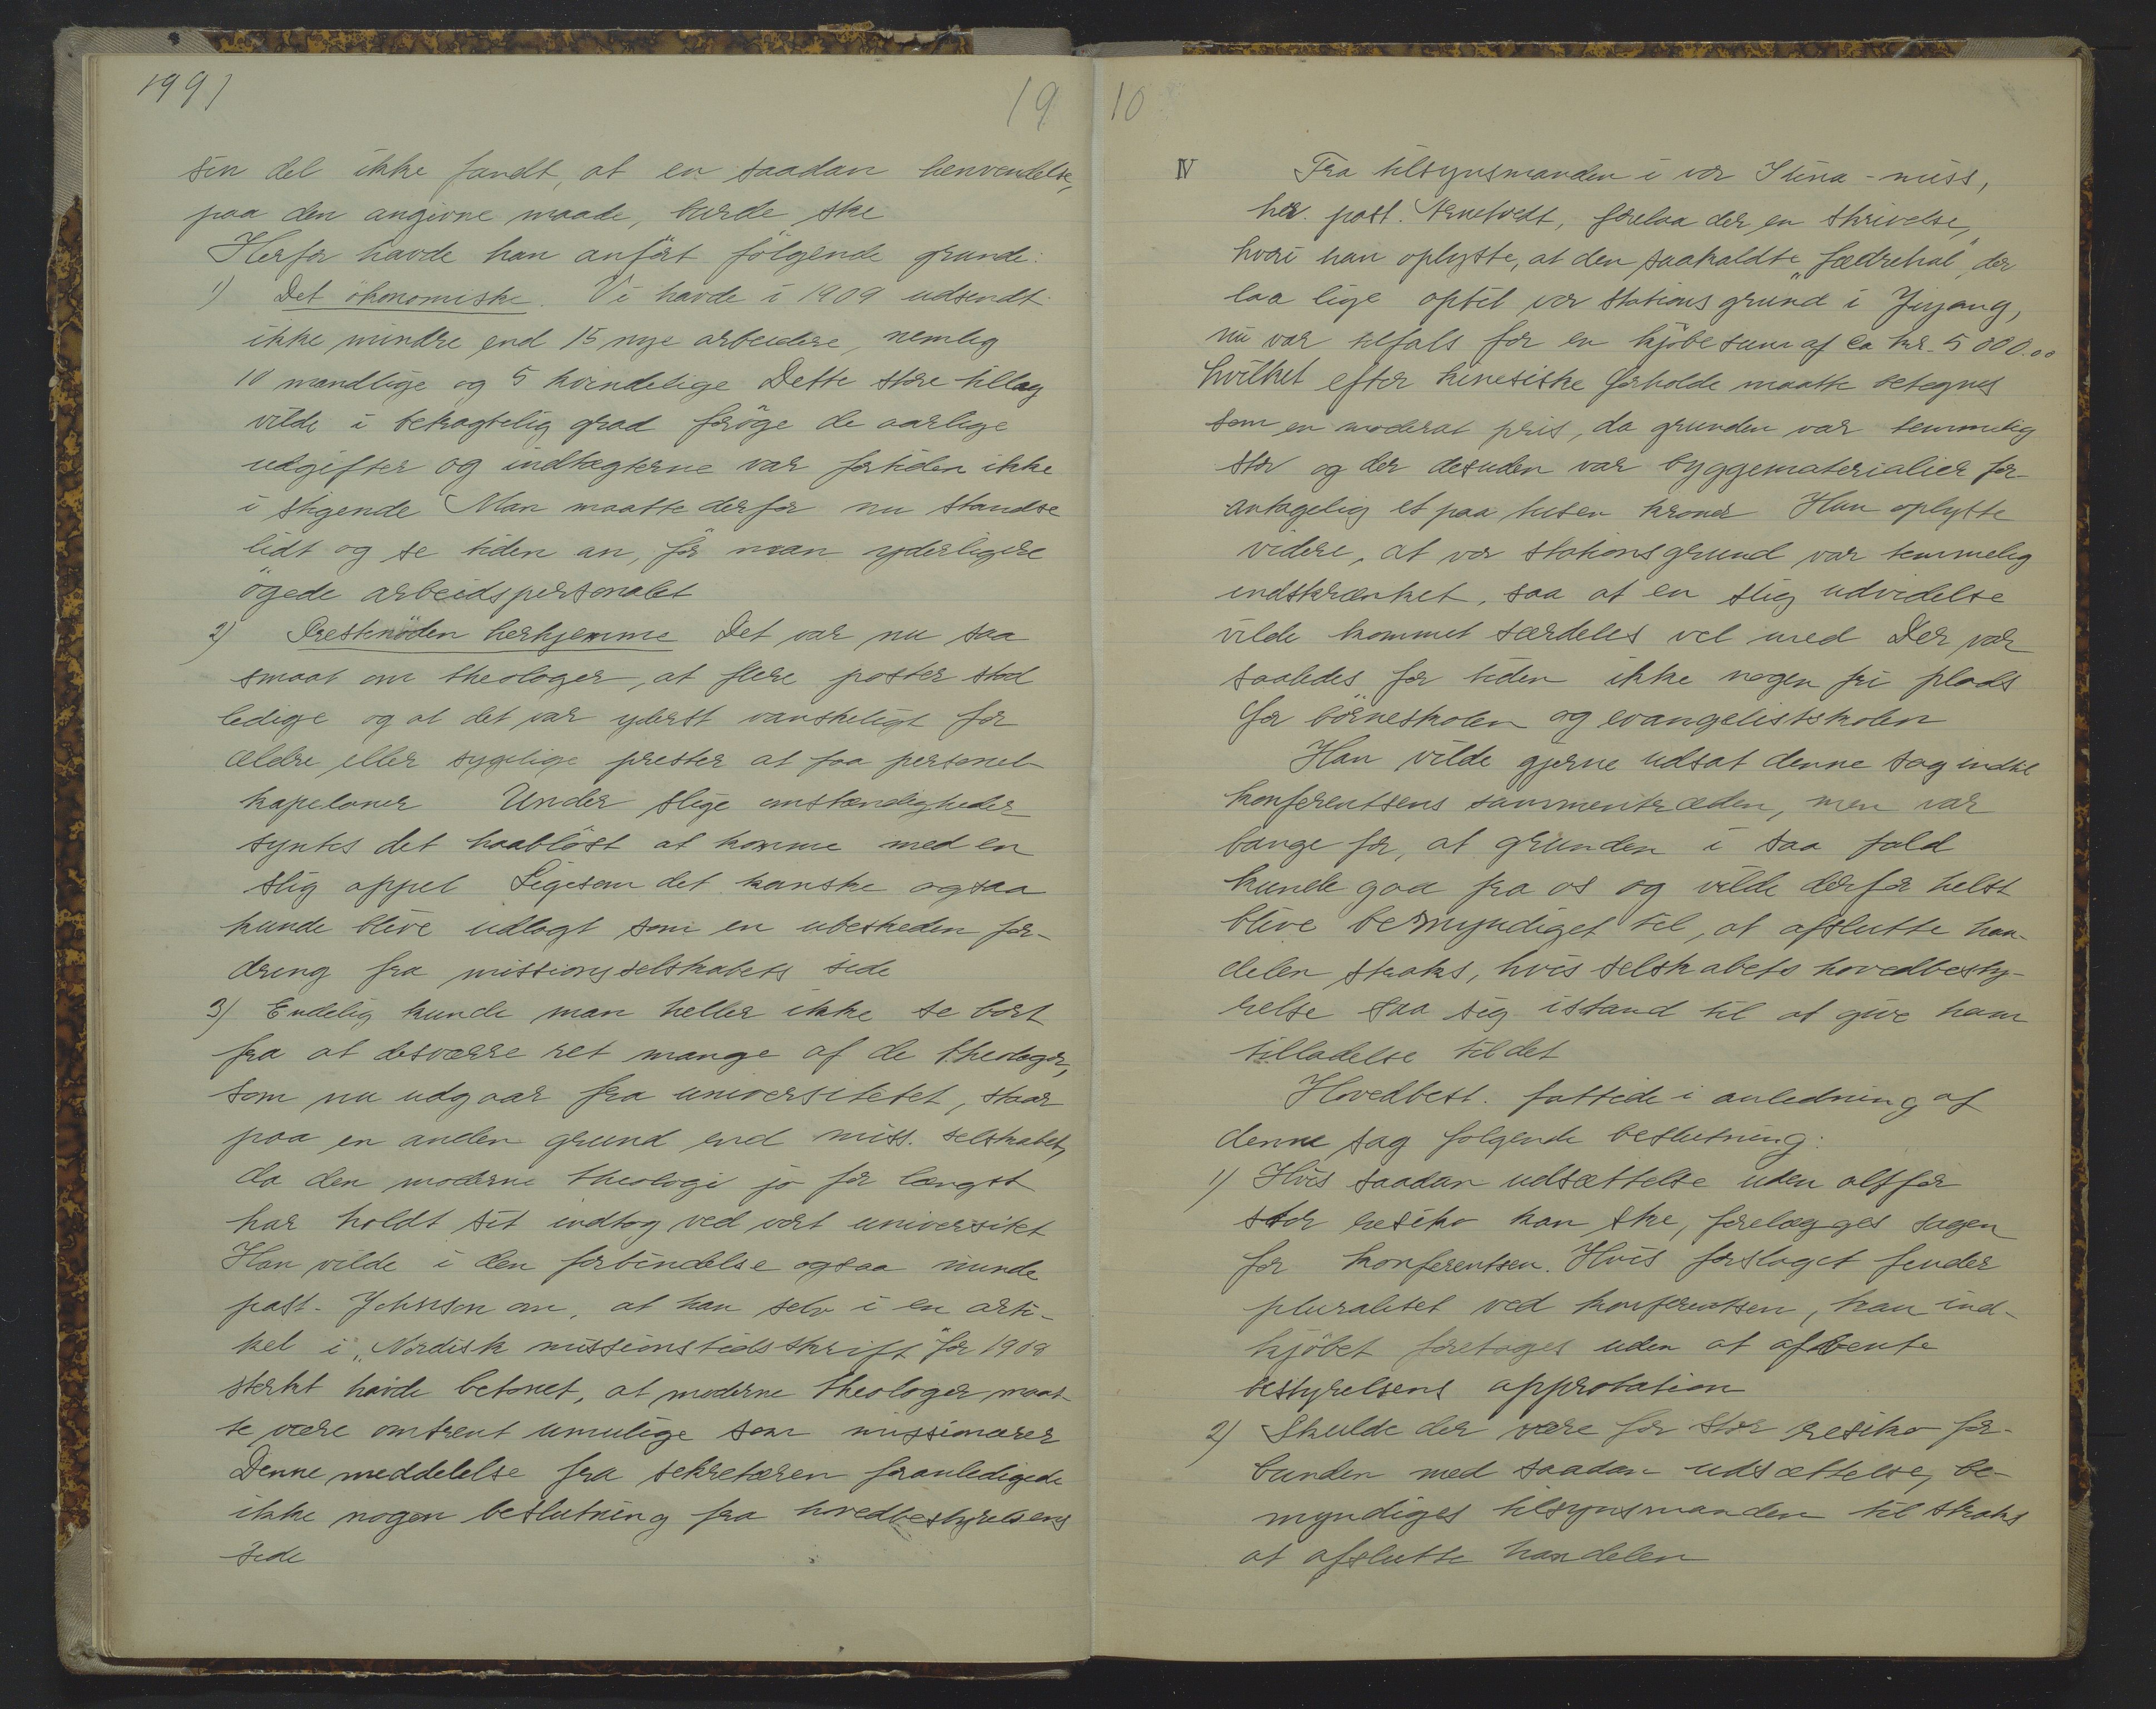 1991
19
sin del ikke fandt, at en saadan henvendelse,
paa den angivne maade, burde ske
Herfor havde han anført følgende grunde:
1) Det økonomiske. Vi havde i 1909 udsendt
ikke mindre end 15 nye arbeidere, nemlig
10 mandlige og 5 kvindelige Dette store tillæg
vilde i betragtelig grad forøge de aarlige
udgifter og indtægterne var fortiden ikke
i stigende Man maatte derfor nu standse
lidt og se tiden an, før man yderligere
øgede arbeidspersonalet
2) Prestenøden herhjemme Det var nu saa
smaat om theologer, at flere poster stod
ledige og at det var yderst vanskeligt for
ældre eller sygelige prester at faa personel-
kapelaner Under slige omstændigheder
syntes det haabløst at komme med en
slig appel Ligesom det kanske ogsaa
kunde blive udlagt som en ubeskeden for-
dring fra missionsselskabets side
3) Endelig kunde man heller ikke se bort
fra at desværre ret mange af de theologer,
som nu udgaar fra universitetet, staar
paa en anden grund end miss. selskabet,
da den moderne theologi jo for længst
har holdt sit indtog ved vort universitet
Han vilde i den forbindelse ogsaa minde
past. Johnson om, at han selv i en arti-
kel i „Nordisk missionstidsskrift" for 1908
sterkt havde betonet, at moderne theologer maat-
te være omtrent umulige som missionærer
Denne meddelelse fra sekretæren foranledigede
ikke nogen beslutning fra hovedbestyrelsens
side
10
IV Fra tilsynsmanden i vor Kina-miss,
hr. past. Arnetvedt, forelaa der en skrivelse,
hvori han oplyste, at den saakaldte „fædrehal", der
laa lige optil vor stationsgrund i Yiyang,
nu var tilfals for en kjøbesum af ca kr. 5000.00
hvilket efter kinesiske forholde maatte betegnes
som en moderat pris, da grunden var temmelig
stor og der desuden var byggematerialier for-
antagelig et paa tusen kroner Han oplyste
videre, at vor stationsgrund var temmelig
indskrænket, saa at en slig udvidelse
vilde kommet særdeles vel med Der var
saaledes for tiden ikke nogen fri plads
for børneskolen og evangelistskolen
Han vilde gjerne udsat denne sag indtil
konferentsens sammentræden, men var
bange for, at grunden i saa fald
kunde gaa fra os og vilde derfor helst
blive bemyndiget til, at afslutte han-
delen straks, hvis selskabets hovedbesty-
relse saa sig istand til at give ham
tilladelse til det
Hovedbest. fattede i anledning af
denne sag følgende beslutning:
1) Hvis saadan udsættelse uden altfor
stor resiko kan ske, forelægges sagen
for konferentsen. Hvis forslaget finder
pluralitet ved konferentsen, kan ind-
kjøbet foretages uden at afvente
bestyrelsens approbation
2) Skulde der være for stor resiko for-
bunden med saadan udsættelse, be-
myndiges tilsynsmanden til straks
at afslutte handelen